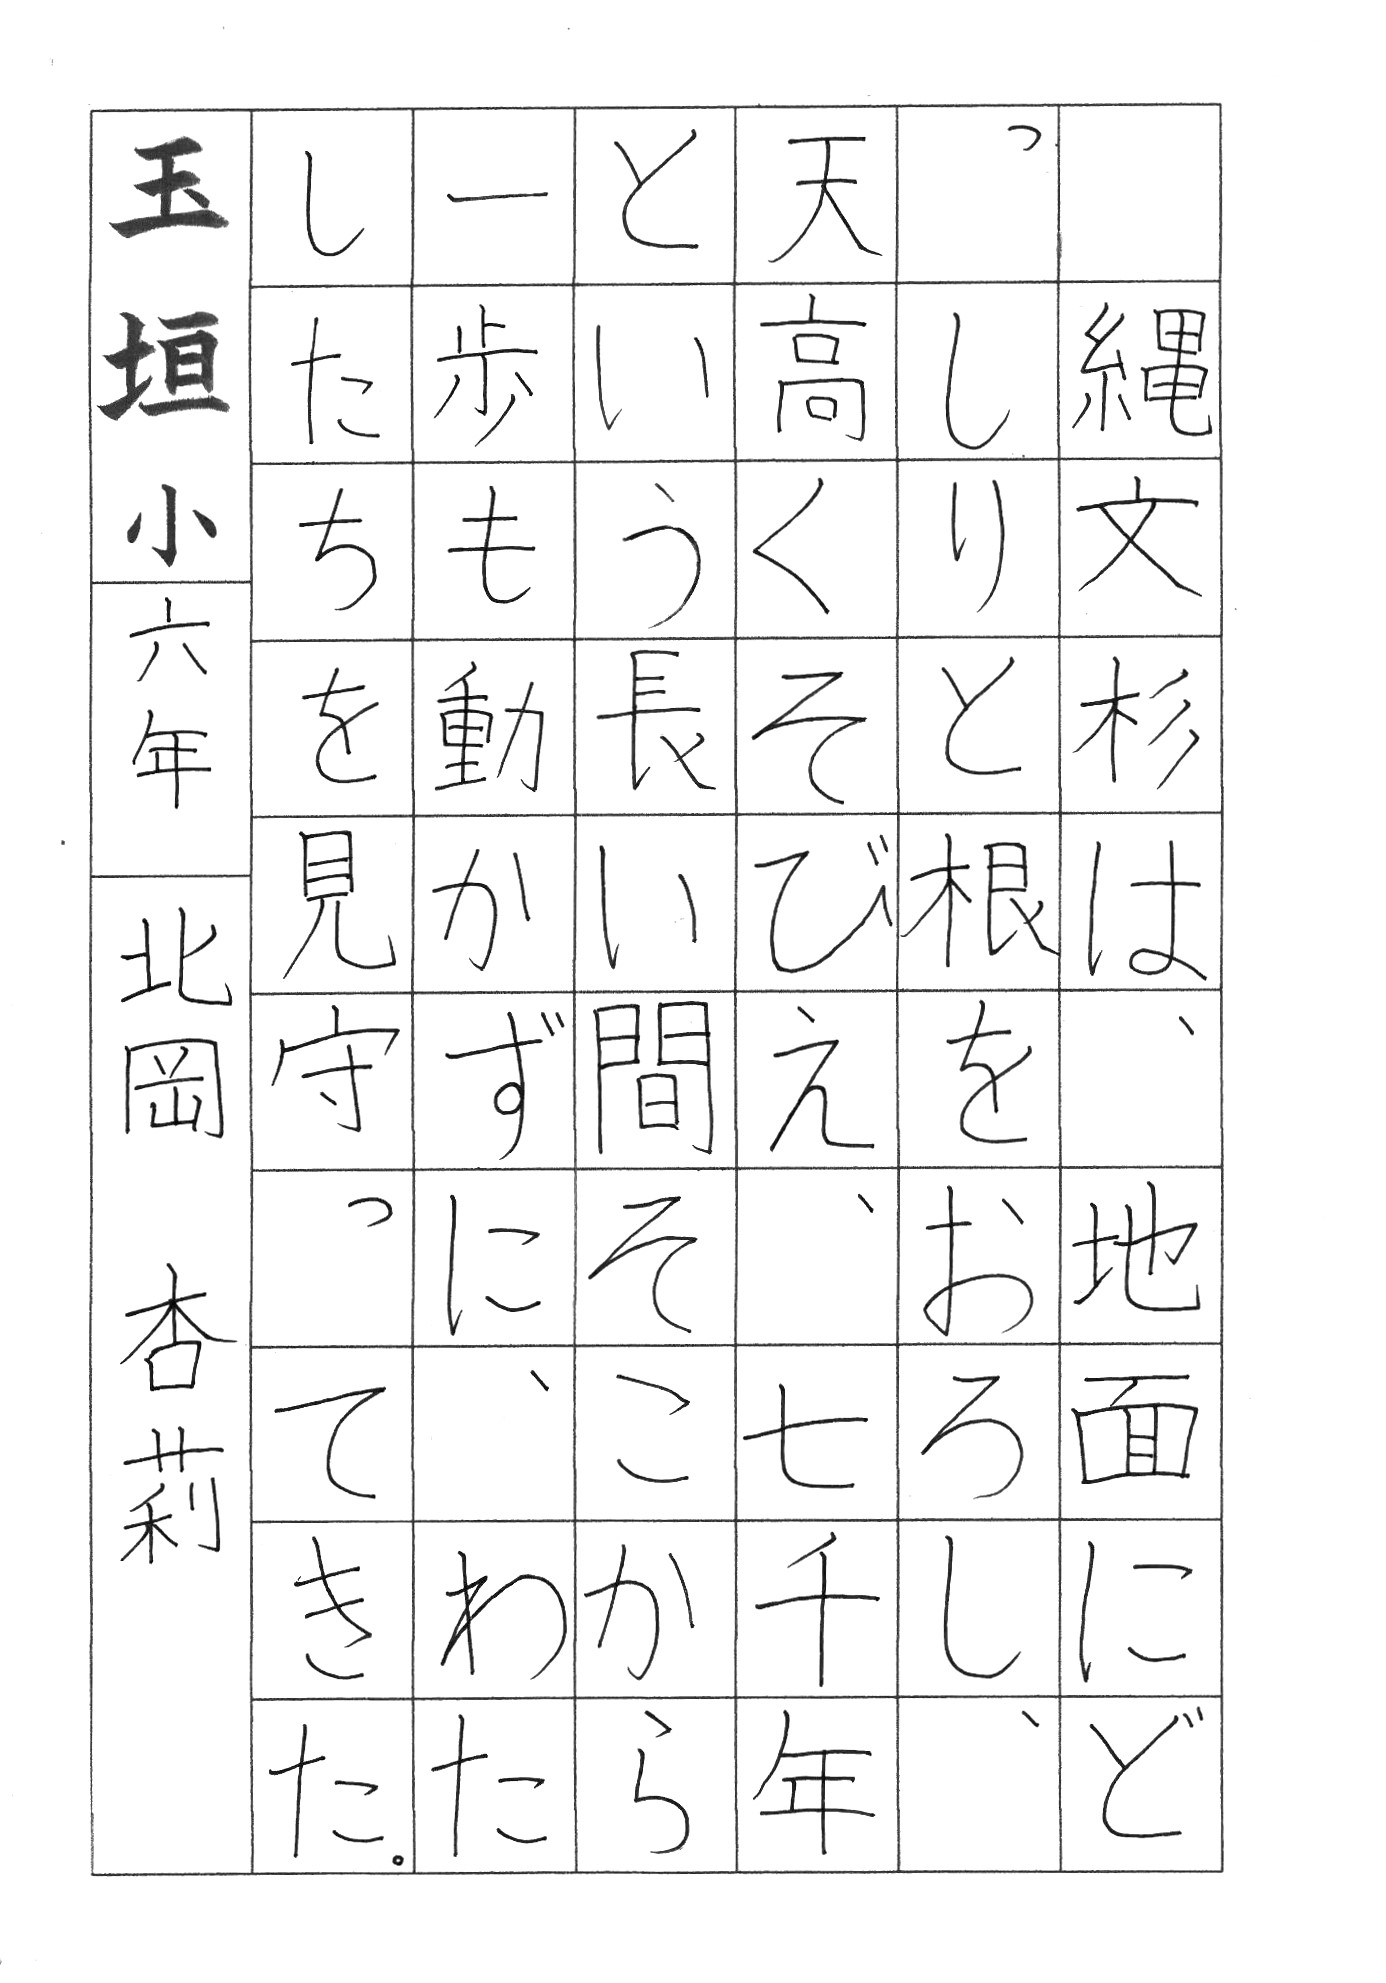 縄文杉は、地面にど
っしりと根をおろし、
天高くそびえ、七千年
という長い間そこから
一歩も動かずに、わた
したちを見守ってきた。
玉垣小六年 北岡 杏莉